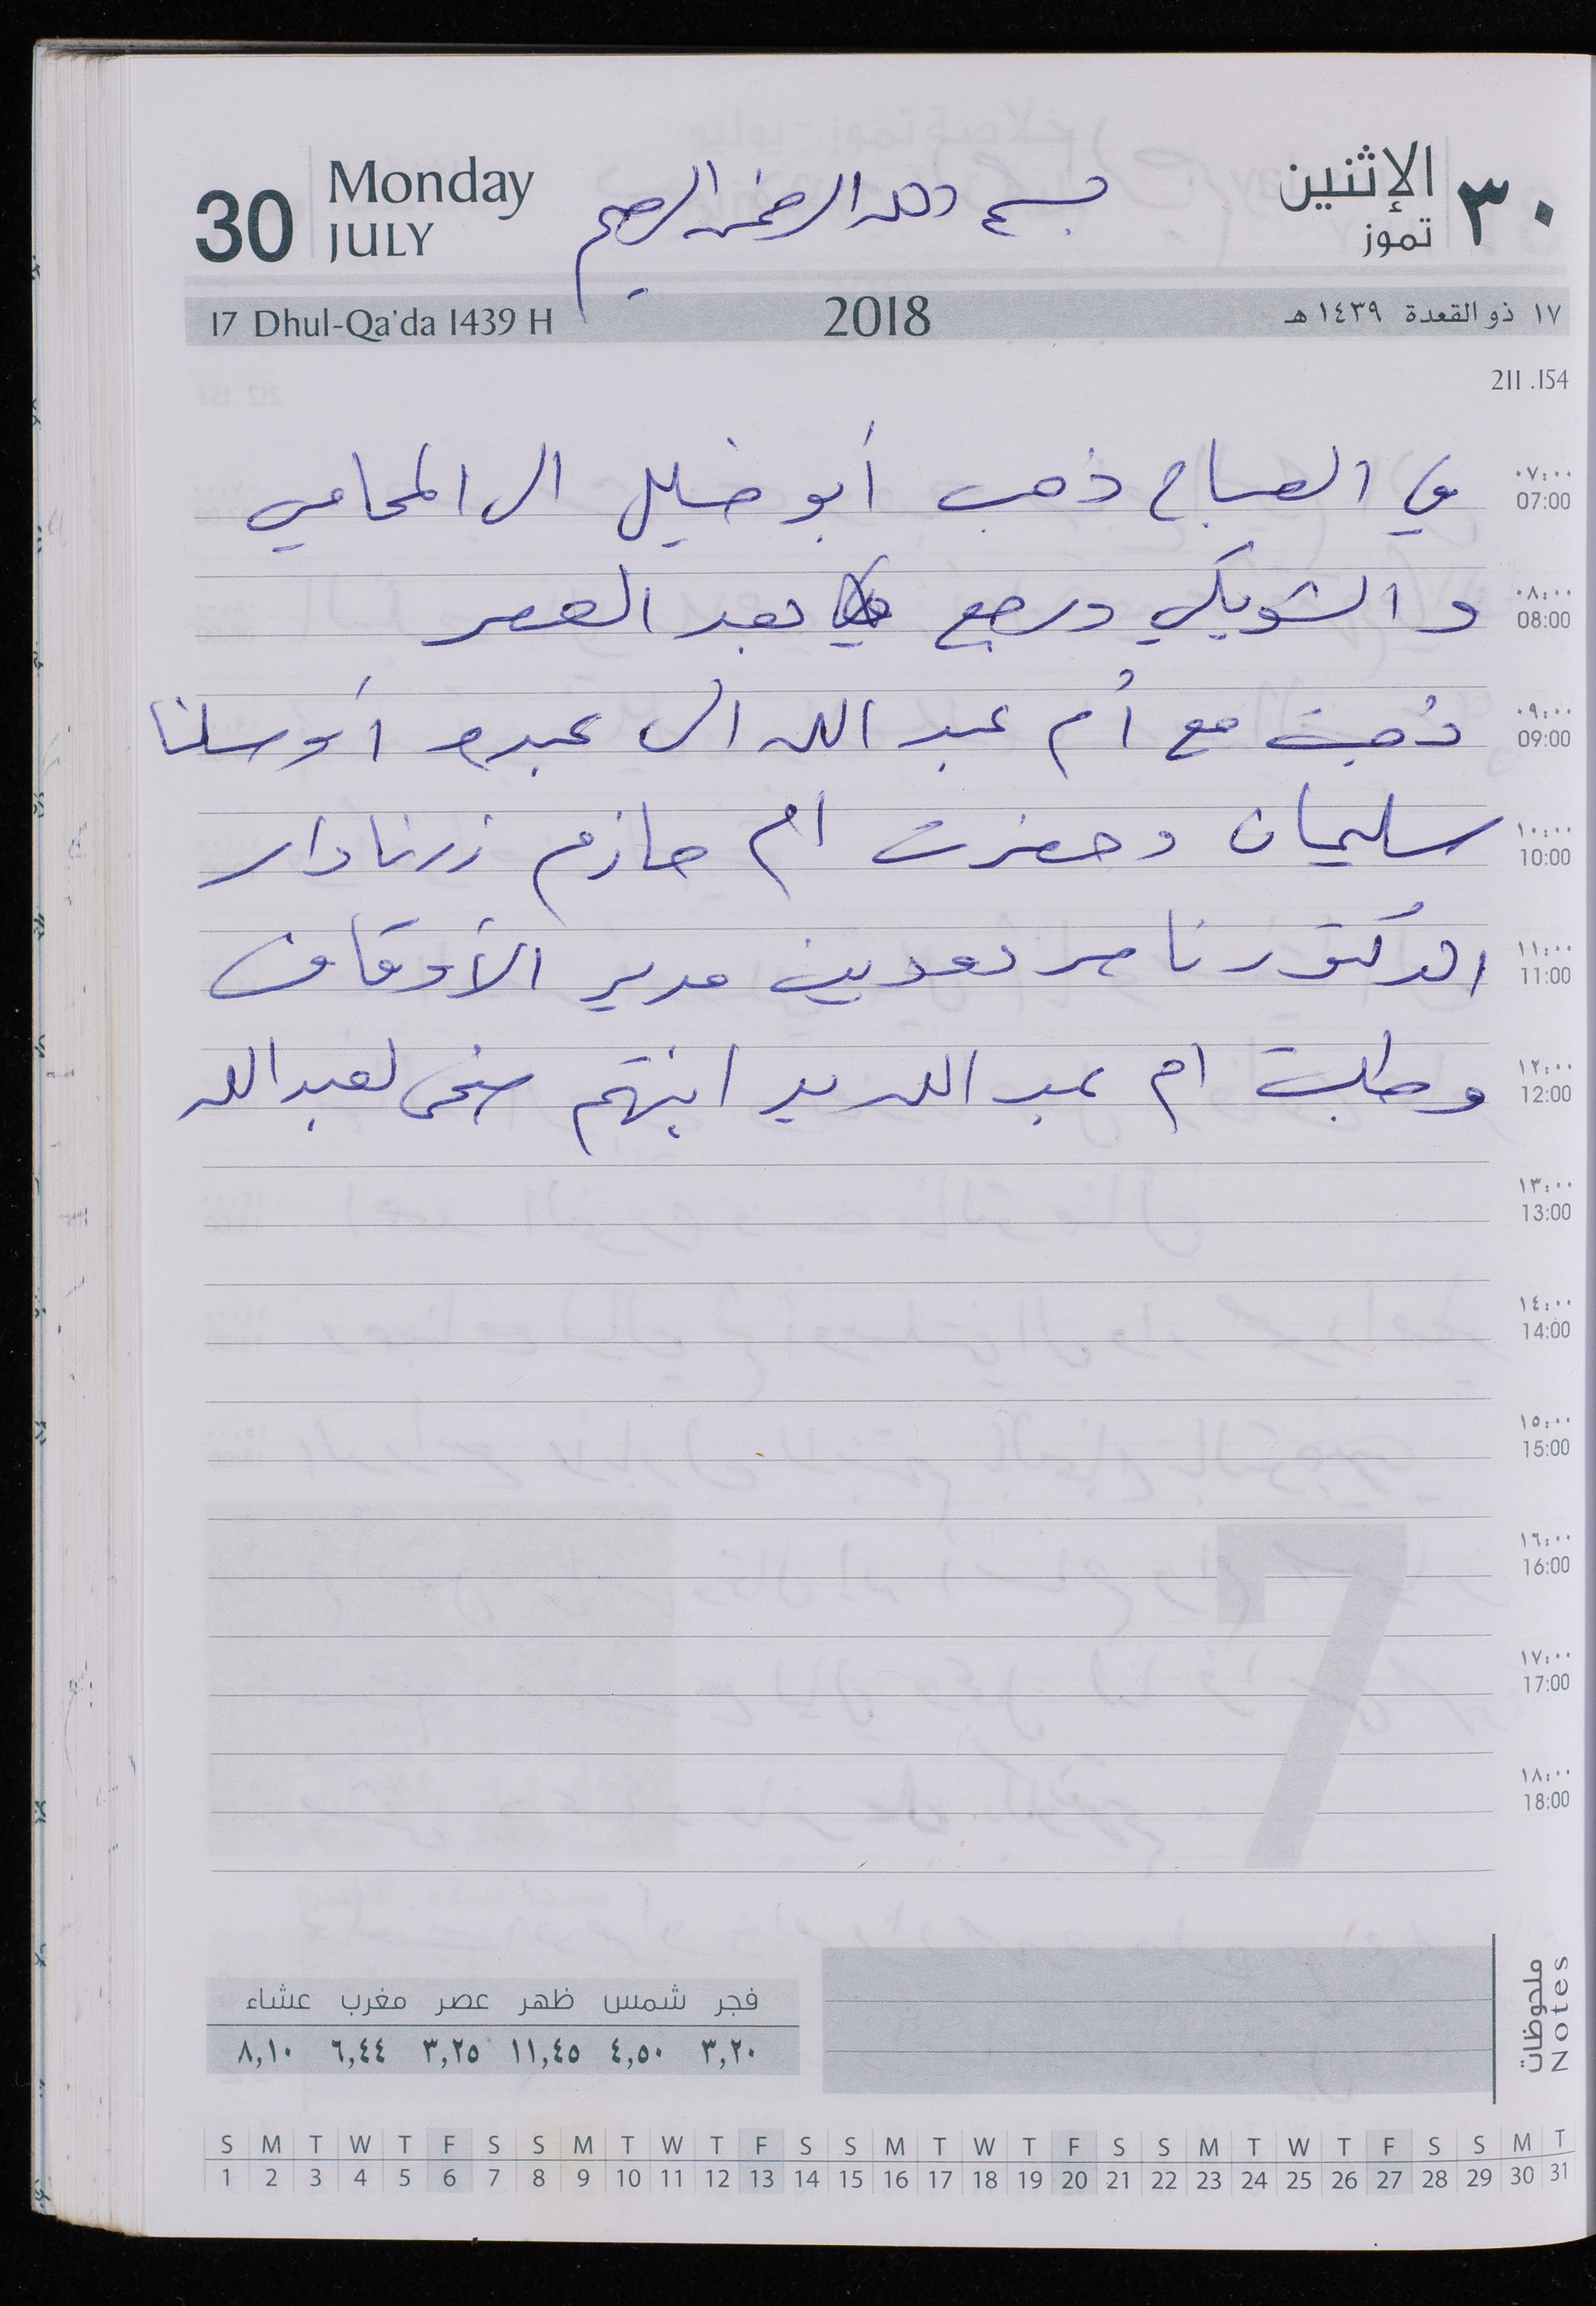 30 Monday JULY بسم الله الرحمن الرحيم الإثنين تموز ٣٠
17 Dhul-Qa'da 1439 H 2018 ١٧ ذو القعدة ١٤٣٩ هـ
211 .154
٠٧:٠٠ 07:00 في الصباح ذهب أبو خليل الى المحامي
٠٨:٠٠ 08:00 و الشويكي ورجع بعد العصر
٠٩:٠٠ 09:00 ذُهبت مع أُم عبد الله الى عبده أوسلنا
١٠:٠٠ 10:00 سليمان وحضرت ام حازم زرنا دار
١١:٠٠ 11:00 الدكتور ناصر مدير الأوقاف
١٢:٠٠ 12:00 وطلبت ام عبد الله يد ابنتهم ضحى لعبد الله
١٣:٠٠ 13:00
١٤:٠٠ 14:00
١٥:٠٠ 15:00
١٦:٠٠ 16:00
١٧:٠٠ 17:00
١٨:٠٠ 18:00
7
ملحوظات Notes
فجر شمس ظهر عصر مغرب عشاء
٣,٢٠ ٤,٥٠ ١١,٤٥ ٣,٢٥ ٦,٤٤ ٨,١٠
S M T W T F S S M T W T F S S M T W T F S S M T W T F S S M T
1 2 3 4 5 6 7 8 9 10 11 12 13 14 15 16 17 18 19 20 21 22 23 24 25 26 27 28 29 30 31